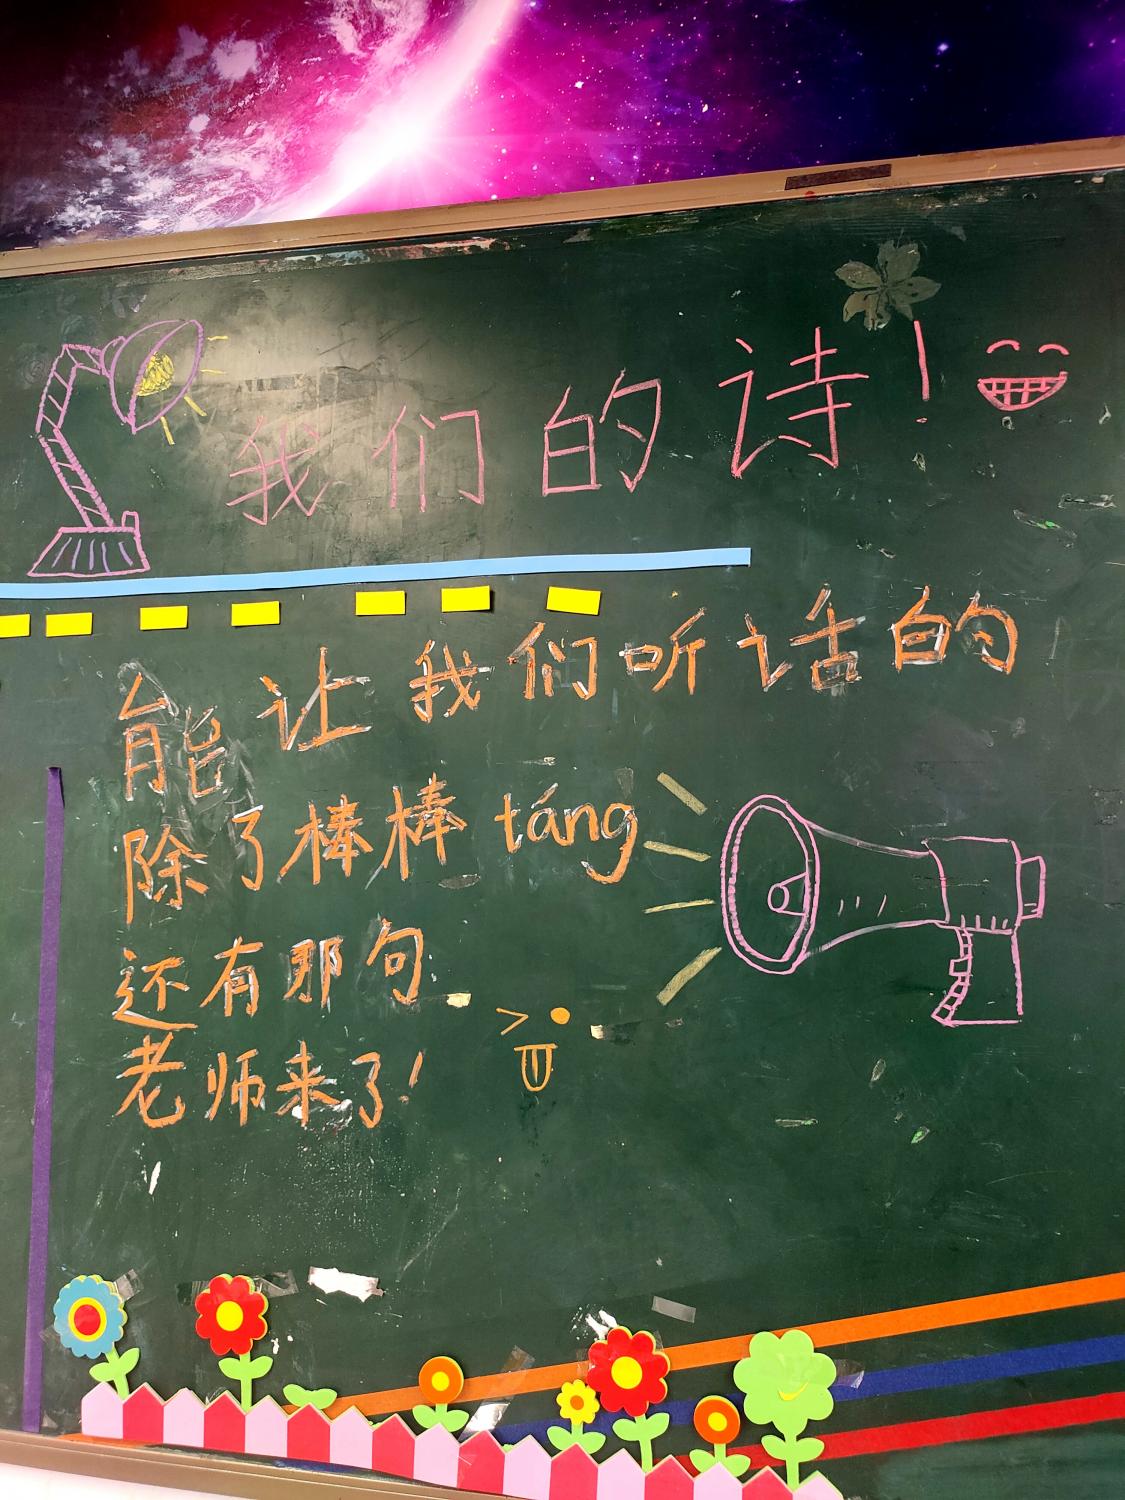 我们的诗!
能让我们听话的
除了棒棒táng
还有那句
老师来了!